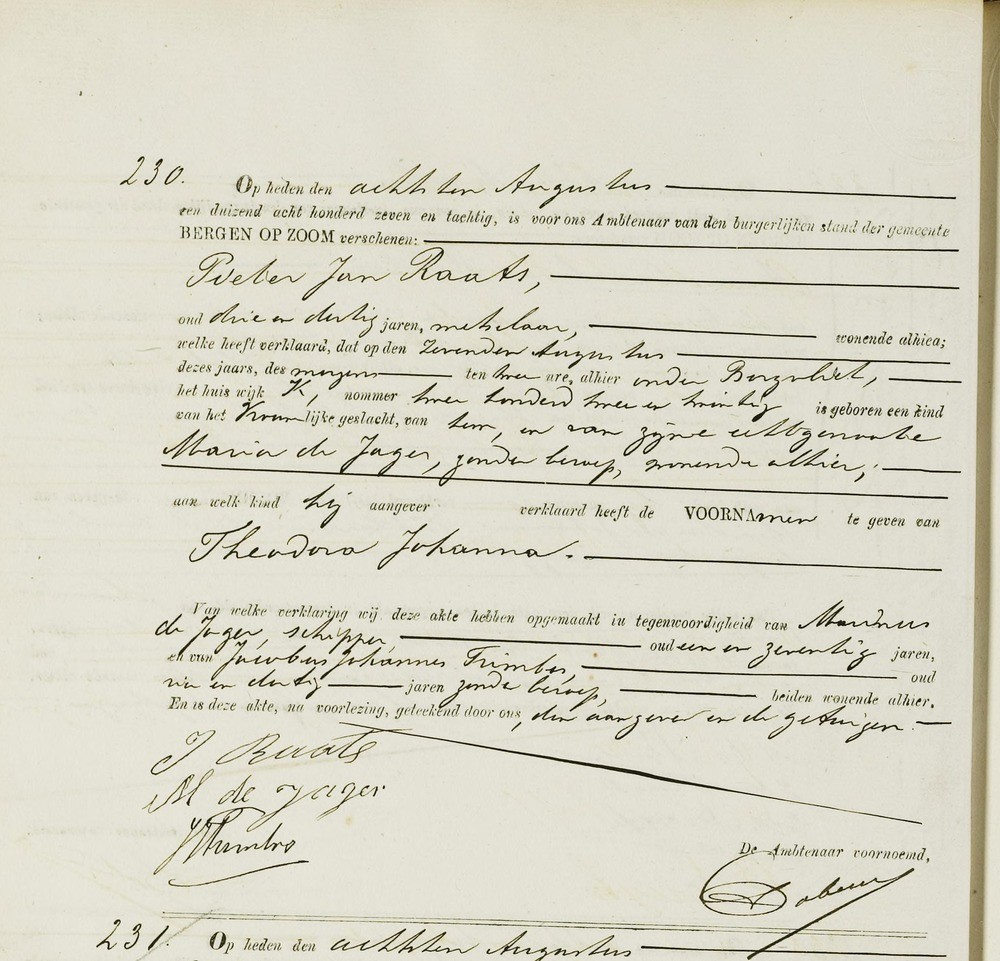 230.
Op heden den achtsten Augustus
een duizend acht honderd zeven en tachtig, is voor ons Ambtenaar van den burgerlijken stand der gemeente
BERGEN OP ZOOM verschenen:
Pieter Jan Raats,
oud drie en dertig jaren, metselaar, wonende alhier;
welke heeft verklaard, dat op den Zevenden Augustus
dezes jaars, des morgens ten twee ure, alhier onder Borgvliet,
het huis wijk K, nommer twee honderd twee en twintig is geboren een kind
van het Vrouwlijke geslacht, van hem, en van zijne echtgenoote
Maria de Jager, zonder beroep, wonende alhier;
aan welk kind hij aangever verklaard heeft de VOORNAmen te geven van
Theodora Johanna.
Van welke verklaring wij deze akte hebben opgemaakt in tegenwoordigheid van Marinus
de Jager, schipper, oud een en zeventig jaren,
en van Jacobus Johannes Frimbos, oud
vier en dertig jaren zonder beroep, beiden wonende alhier.
En is deze akte, na voorlezing, geteekend door ons, den aangever en de getuigen.
P Raats
M de Jager
De Ambtenaar voornoemd,
231.
Op heden den achtsten Augustus